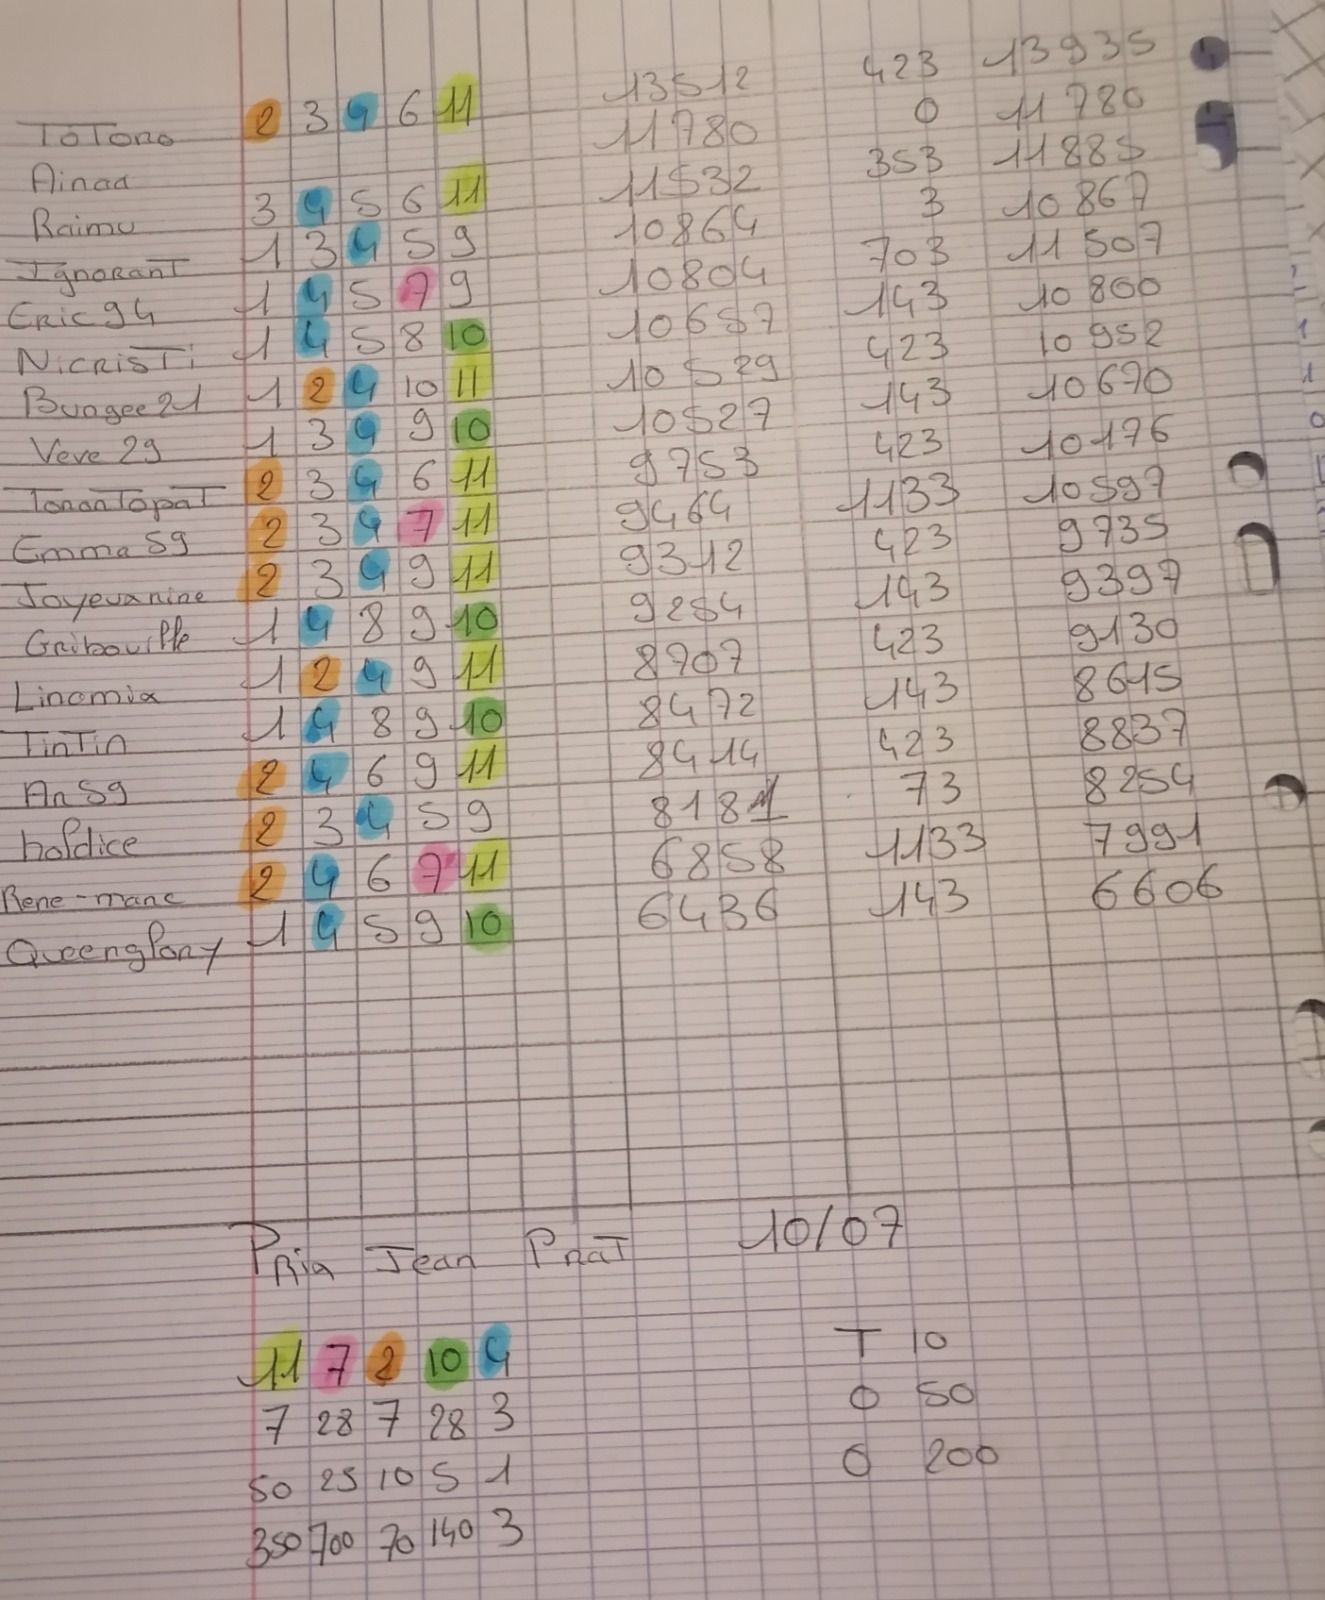 ToTono 2 3 4 6 11 13512 423 13935
Ainad 11780 0 11780
Raimu 3 4 5 6 11 11532 353 11885
Ignorant 1 3 4 5 9 10864 3 10867
Eric94 1 4 5 7 9 10804 703 11507
NicrisTi 1 4 5 8 10 10657 143 10800
Bungee21 1 2 4 10 11 10529 423 10952
Veve 29 1 3 4 9 10 10527 143 10670
TonanTopaT 2 3 4 6 11 9753 423 10176
Emma59 2 3 4 7 11 9464 1133 10597
Joyeuxnine 2 3 4 9 11 9312 423 9735
Gribouille 1 4 8 9 10 9254 143 9397
Linomia 1 2 4 9 11 8707 423 9130
TinTin 1 4 8 9 10 8472 143 8615
An59 2 4 6 9 11 8414 423 8837
holdice 2 3 4 5 9 8181 73 8254
Rene-marc 2 4 6 7 11 6858 1133 7991
Queenglory 1 4 5 9 10 6436 143 6606
PRix Jean PraT 10/07
11 7 2 10 4 T 10
7 28 7 28 3 O 50
50 25 10 5 1 O 200
350 700 70 140 3